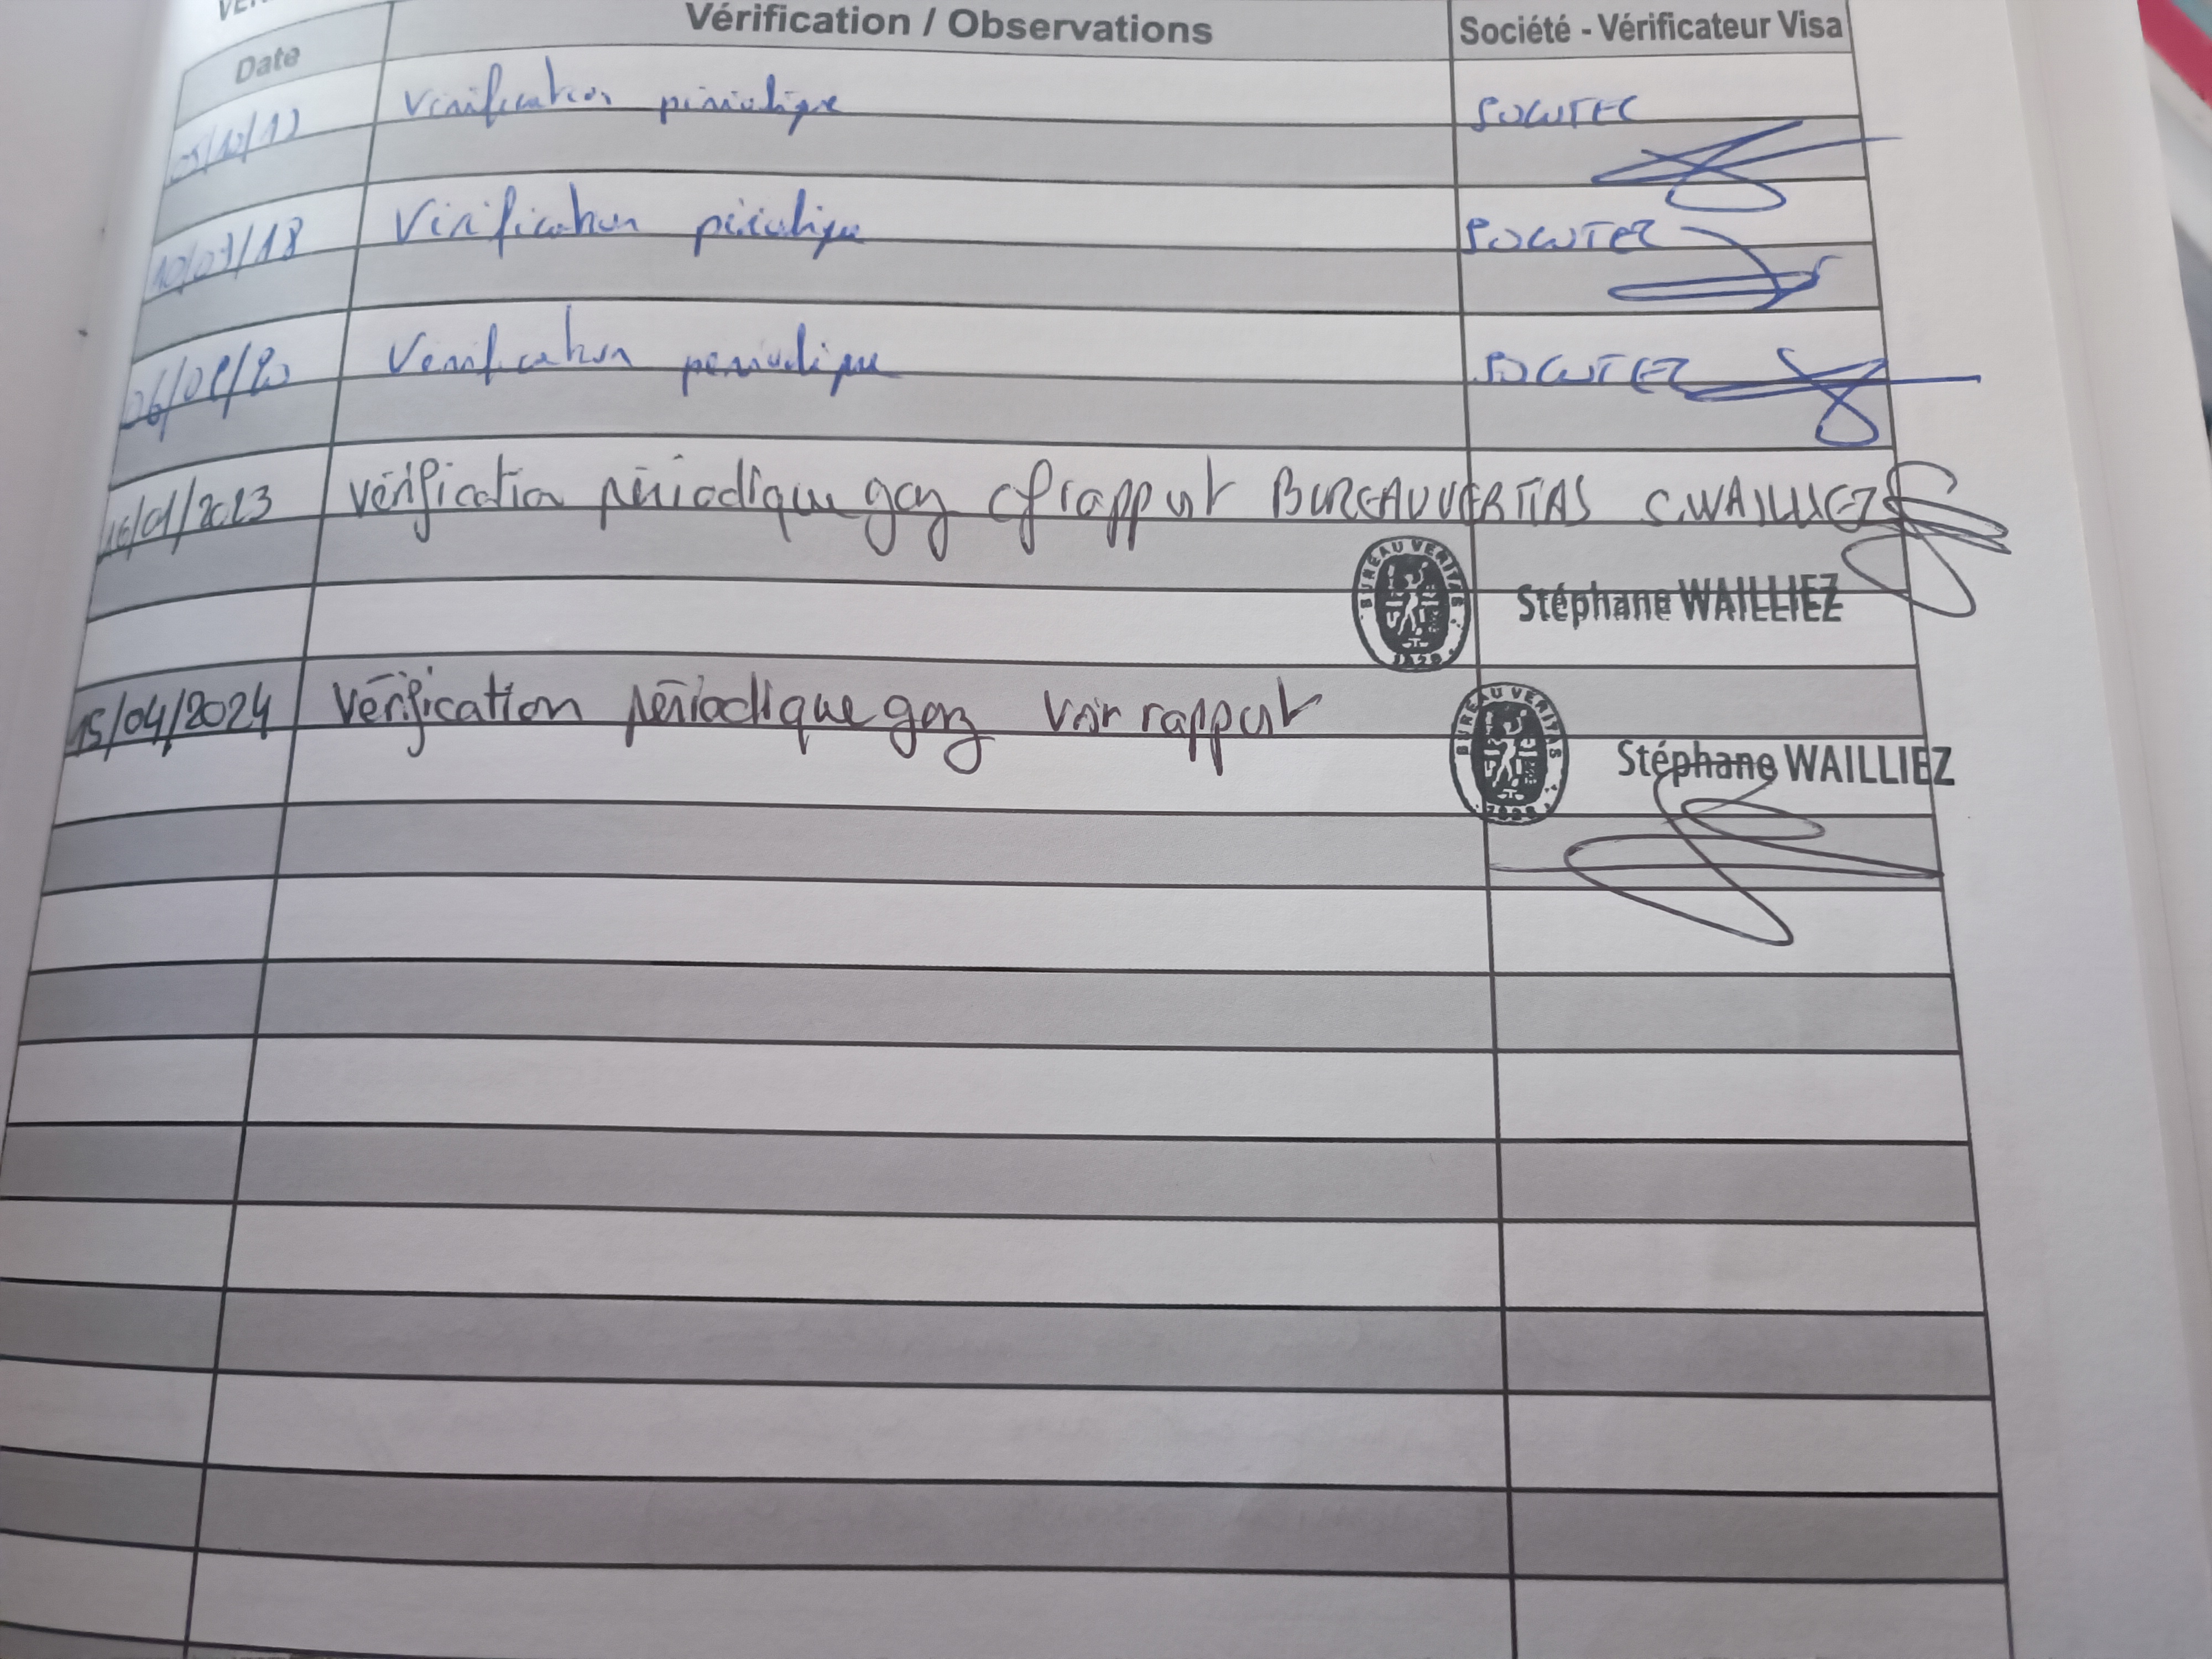 Date Vérification / Observations Société - Vérificateur Visa
Vérification périodique SOCOTEC
10/07/18 Vérification périodique SOCOTEC
Vérification périodique SOCOTEC
16/01/2023 vérification périodique gaz cf rapport BUREAU VERITAS S.WAILLIEZ
BUREAU VERITAS 1828 Stéphane WAILLIEZ
15/04/2024 Vérification périodique gaz voir rapport
BUREAU VERITAS 1828 Stéphane WAILLIEZ